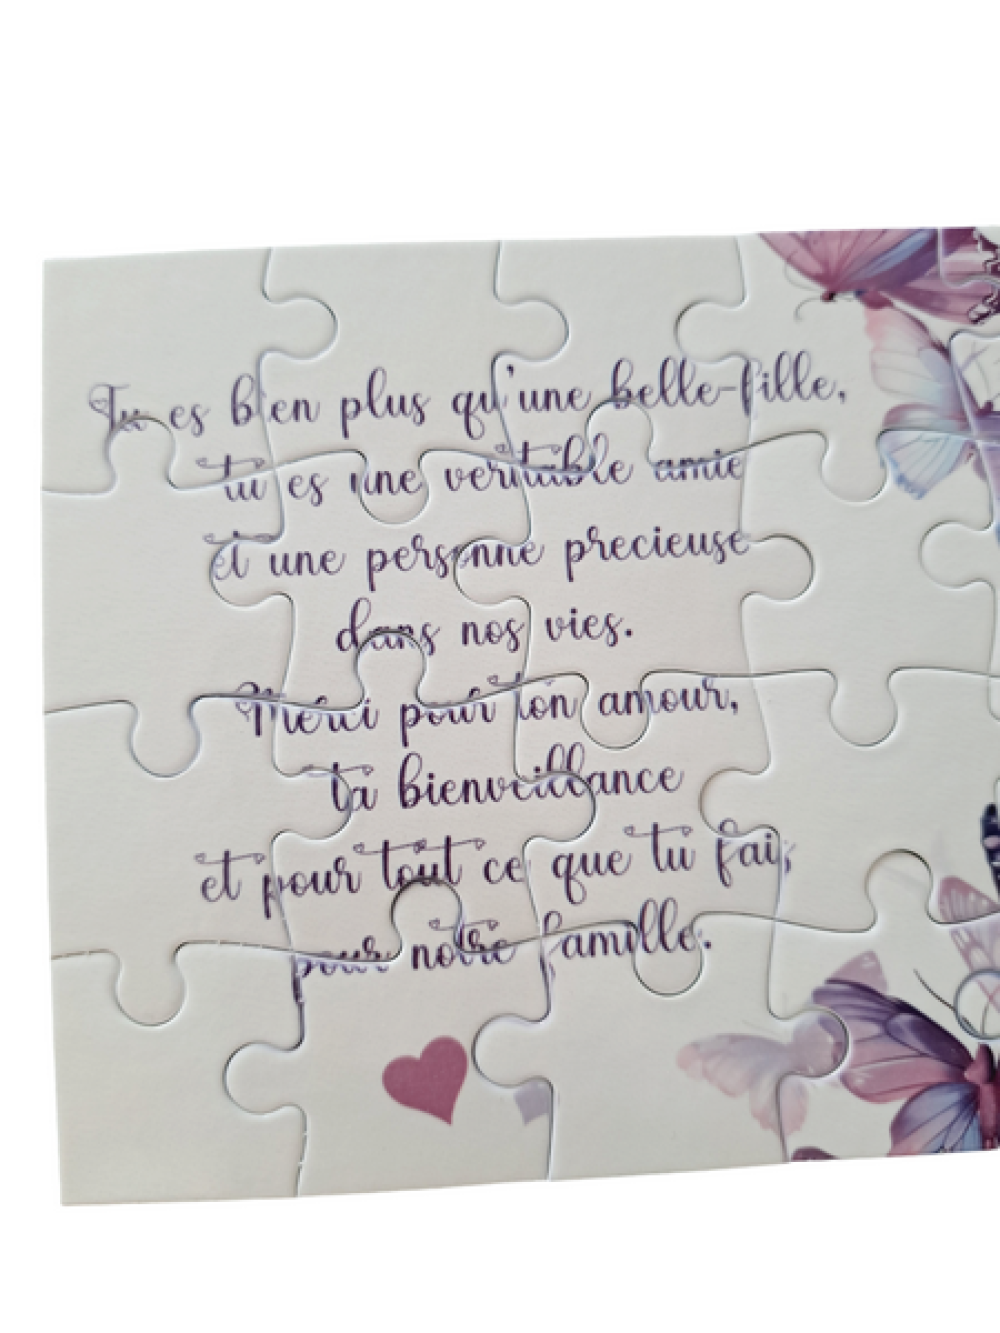 Tu es bien plus qu'une belle-fille,
tu es une veritable amie
et une personne precieuse
dans nos vies.
Merci pour ton amour,
ta bienveillance
et pour tout ce que tu fais
pour notre famille.